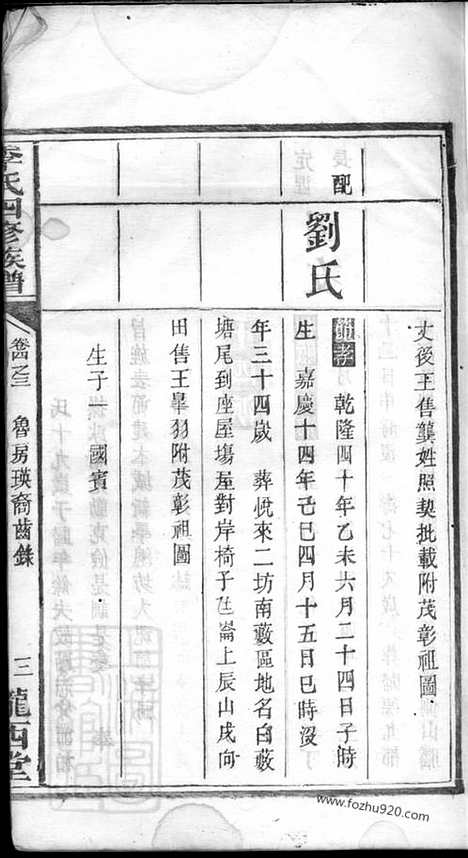 丈後王售龔姓照契批載附茂彰祖圖
配
劉氏
節孝 乾隆四十年乙未六月二十四日子時
生 嘉慶十四年己巳四月十五日巳時沒
年三十四歲 葬悅來二坊南藪區地名白藪
塘尾到座屋塲屋對岸椅子 崙上辰山戌向
田售王皐羽附茂彰祖圖
生子 國賓
李氏四修族譜
卷四之三 魯房瑛裔齒錄
三 隴西堂
www.fozhu920.com